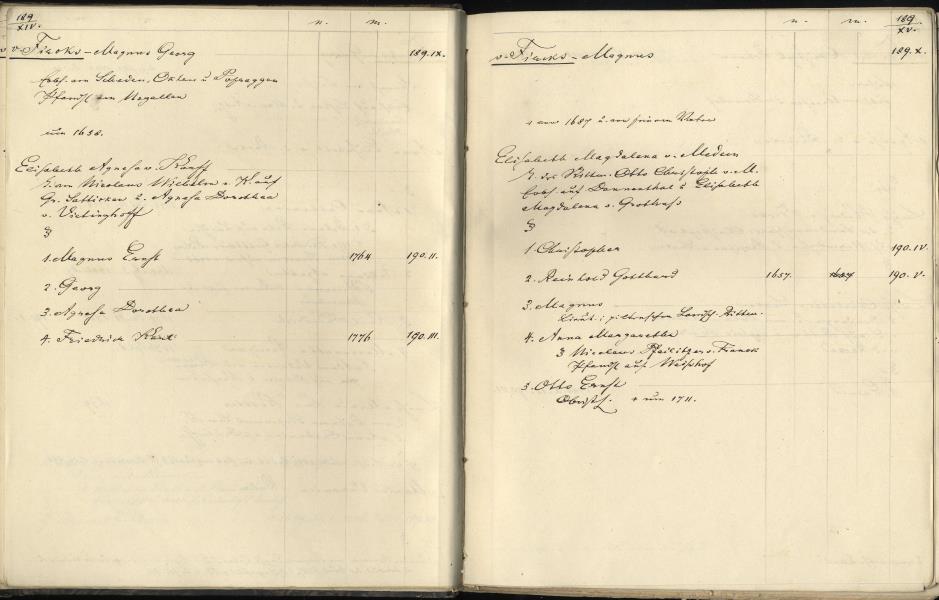 189
XIV.
n. m.
v. Fircks - Magnus Georg 189.IX.
Erbh. von Scheden, Okten u
Pfandh. von Wegallen
um 1658.
Elisabeth Agnesa v. Korff
T. von Nicolaus Wilhelm v. K. auf
Gr. u. Agnesa Dorothea
v. Vietinghoff
1. Magnus Ernst 1764 190.II.
2. Georg
3. Agnesa Dorothea
4. Friedrich 1776 190.III.
189
XV.
n. m.
v. Fircks - Magnus 189.X.
1687 u. von seinem Vater
Elisabeth Magdalena v. Medem
T. des Otto Christoph v. M.
Erbh. auf Dannenthal u Elisabeth
Magdalena v. Grotthuss
1. Christopher 190.IV.
2. Reinhold Gotthard 1657. 1687 190.V.
3. Magnus
Lieut. i. piltenschen
4. Anna Margaretha
Nicolaus Pfeilitzer v. Franck
Pfandh. auf
5. Otto Ernst
Obristl. + um 1711.